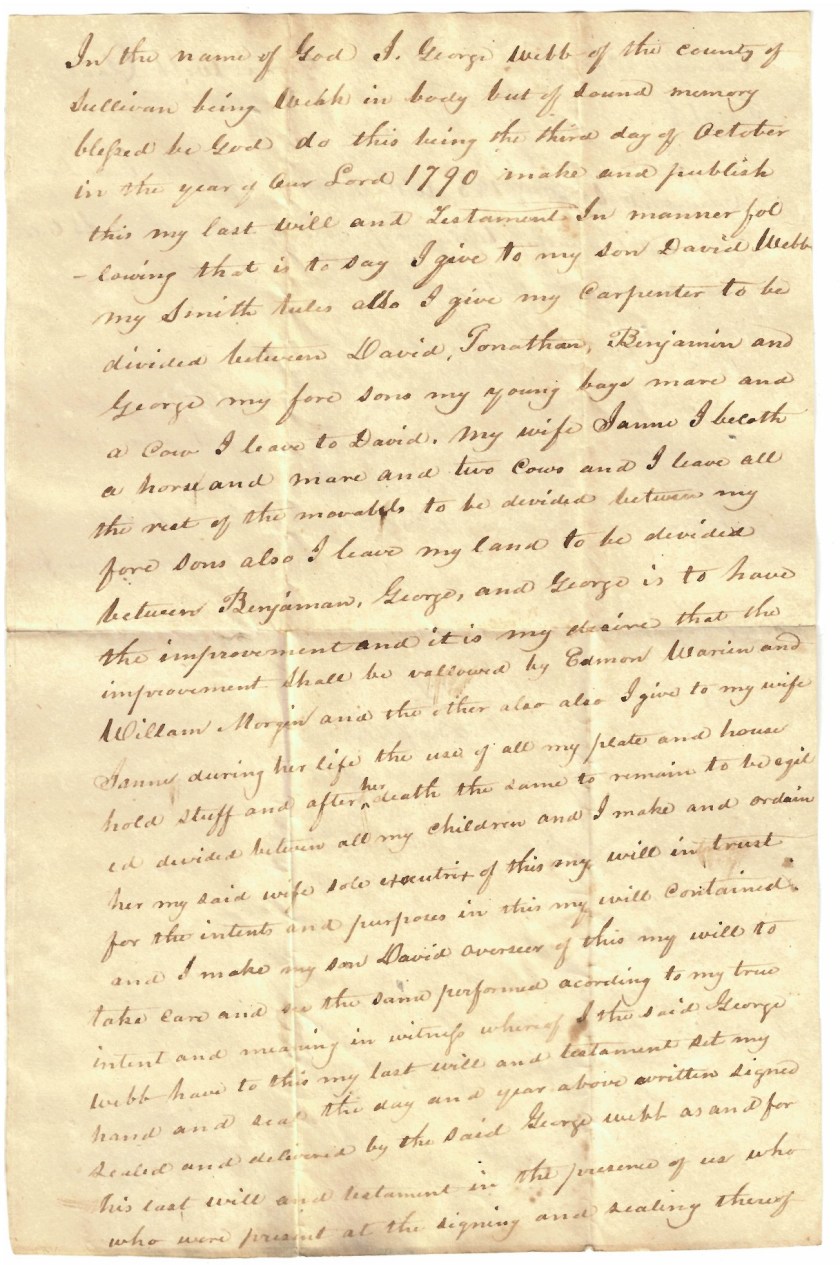 In the name of God I. George Webb of the county of
Sullivan being Webk in body but of sound memory
blessed be God do this being the third day of October
in the year of Our Lord 1790 make and publish
this my last will and Testament In manner fol
- lowing that is to say I give to my son David Webb
my Smith tules also I give my Carpenter to be
divided between David, Jonathan, Benjamin and
George my fore sons my young baye mare and
a Cow I leave to David. My wife Janne I beloth
a horse and mare and two Cows and I leave all
the rest of the movabels to be divided between my
fore sons also I leave my land to be divided
between Benjaman, George, and George is to have
the improvement and it is my desire that the
improvement Shall be vallowed by Edmon Warien and
Willam Morgin and the other also also I give to my wife
Janne during her life the use of all my plate and house
hold stuff and after her death the same to remain to be eqil
ed divided between all my children and I make and ordain
her my said wife sole executrix of this my will in trust
for the intents and purposes in this my will Contained.
and I make my son David overseer of this my will to
take care and see the same performed acording to my true
intent and meaning in witness whereof I the said George
Webb have to this my last will and testament set my
hand and seal the day and year above written signed
sealed and delivered by the said George webb as and for
his last will and testament in the presence of us who
who were present at the signing and sealing thereof